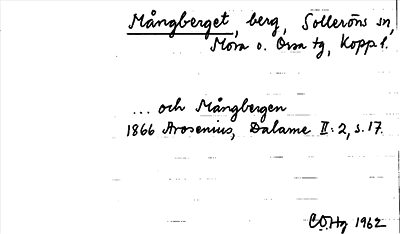 Mångberget, berg, Solleröns sn,
Mora o. Orsa tg, Kopp l.
... och Mångbergen
1866 Arosenius, Dalarne II:2, s. 17.
COHg 1962